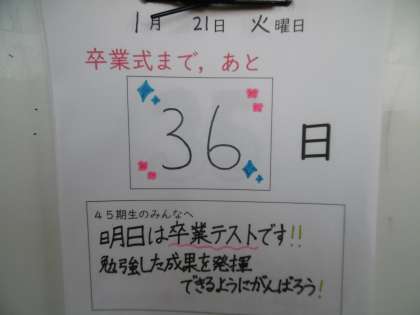 1月 21日 火曜日
卒業式まで，あと
36日
４５期生のみんなへ
明日は卒業テストです!!
勉強した成果を発揮
できるようにがんばろう!